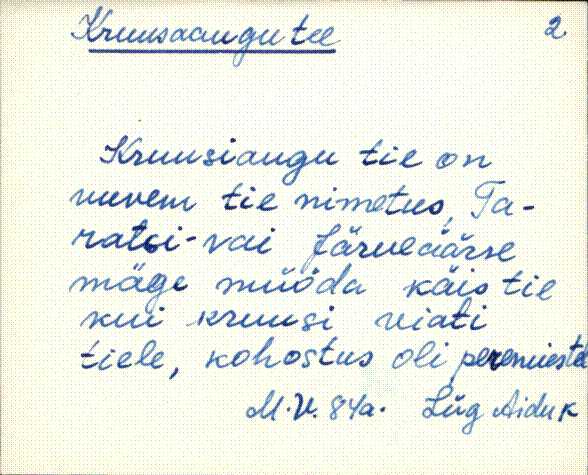 Kruusaangu tee 2
Kruusiaugu tie on
uuvem tie nimetus, Ta-
ratsi- vai Järveäärse
mäge müöda käis tie
kui kruusi viati
tiele, kohostus oli peremiestel
M.V. 84a. Lüg Aiduk